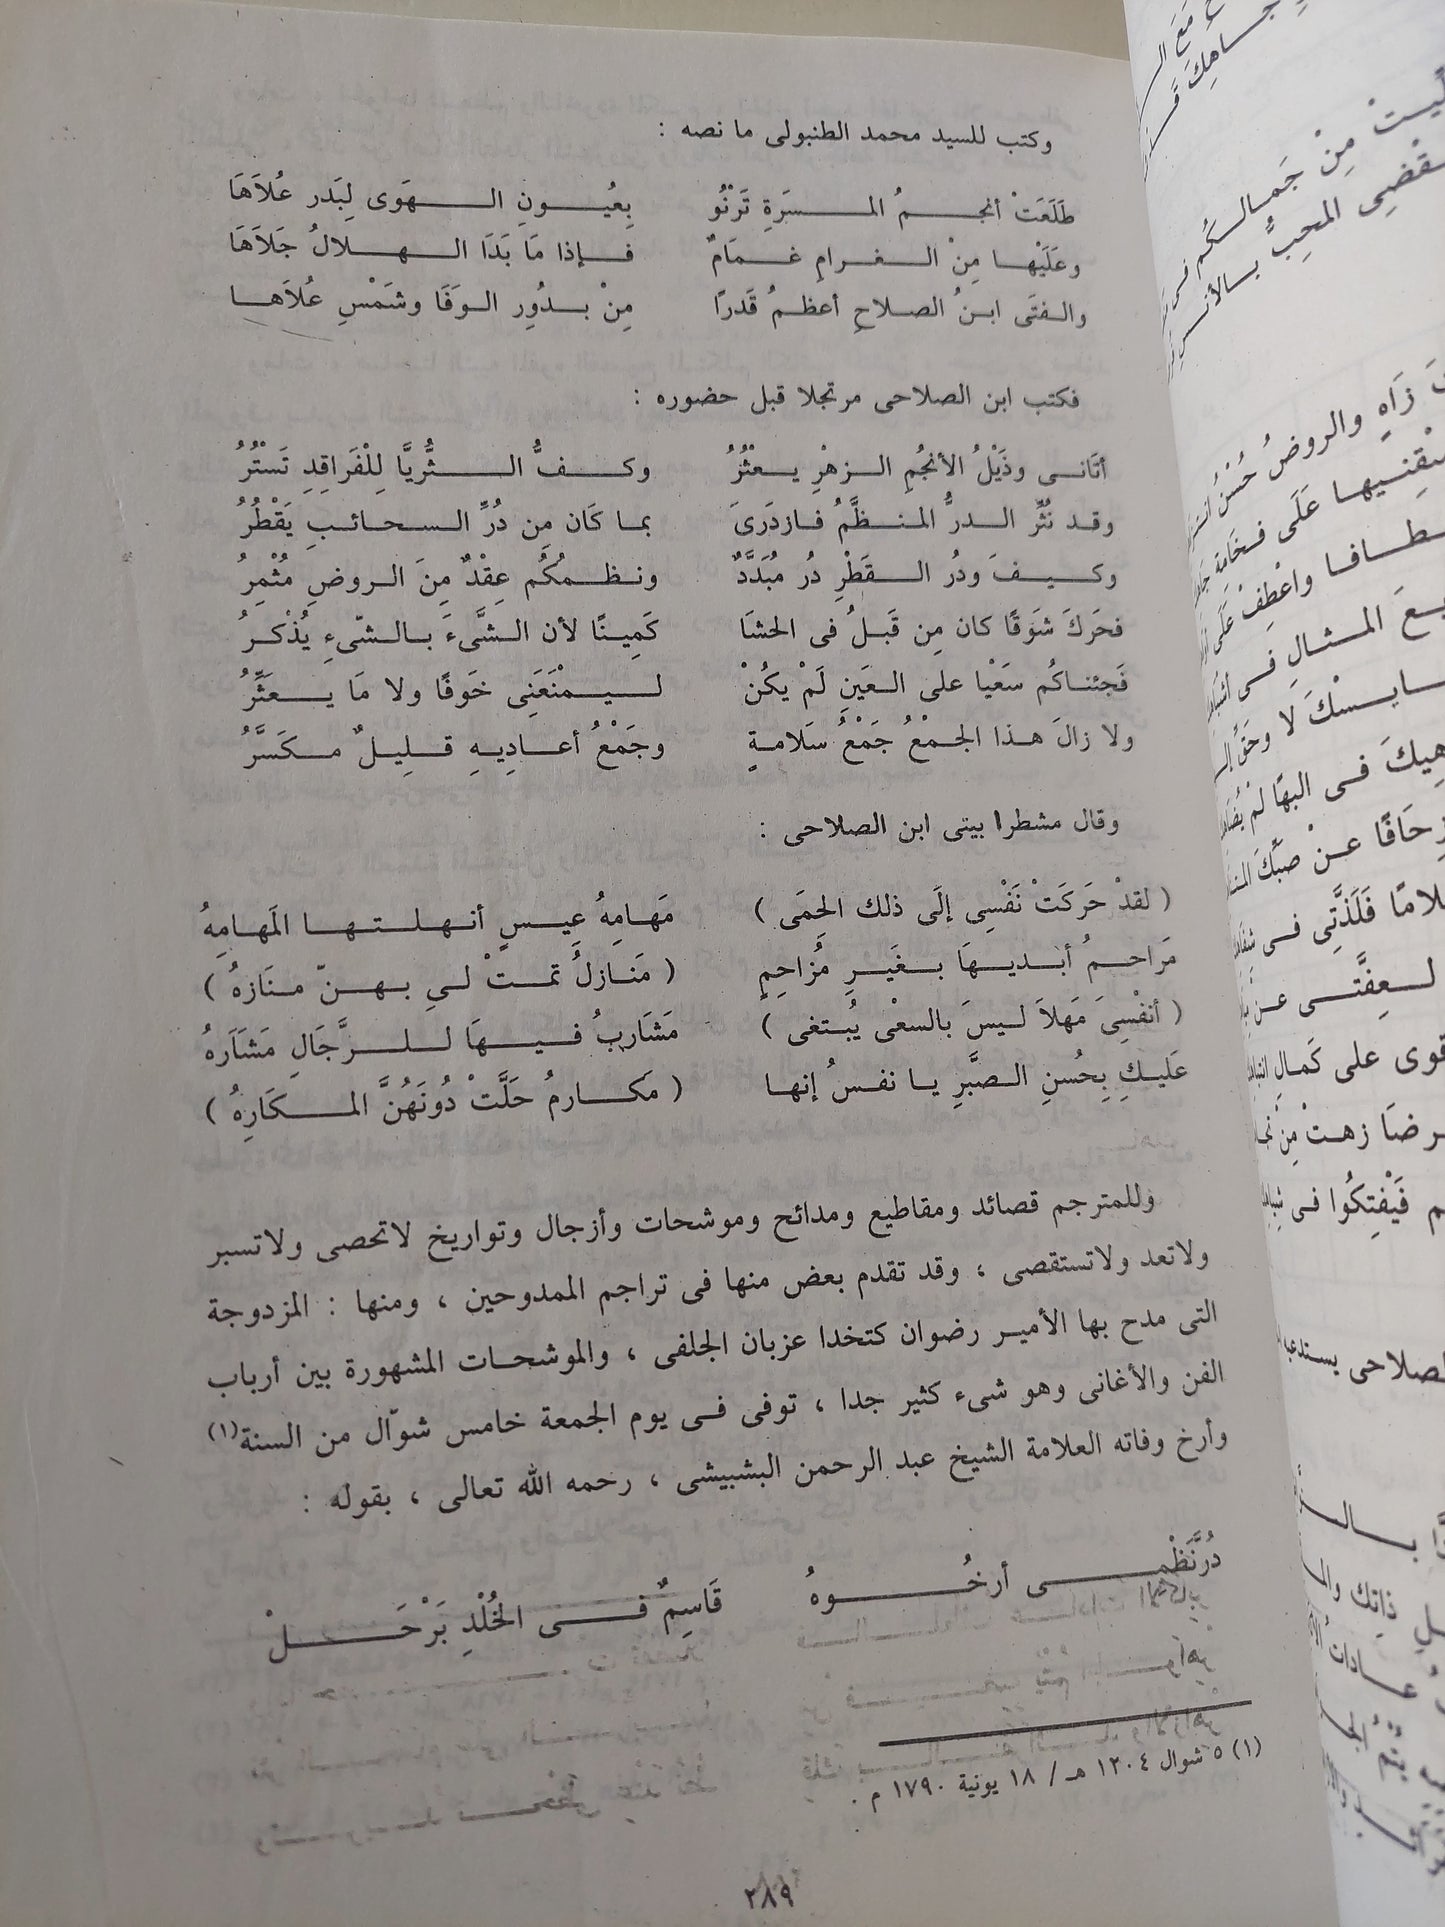 وكتب للسيد محمد الطنبولى ما نصه :
طَلَعَتْ أنجمُ المسَرَةِ تَرْنُو بِعُيُونِ الهَوَى لِبَدر عُلاَهَا
وعَلَيْها مِنْ الغرامِ غمَامٌ فإذا مَا بَدَا الهلالُ جَلاَهَا
والفتَى ابنُ الصلاحِ أعظمُ قَدرًا مِنْ بدُورِ الوَفَا وشَمْسِ عُلاَها
فكتب ابن الصلاحى مرتجلا قبل حضوره :
أتَانى وذَيْلُ الأنجُمِ الزهْرِ يعثرُ وكفُّ الثُّريَّا لِلْفَراقِدِ تَسْتُرُ
وقد نُثِّر الدرُّ المنظَّمُ فازدَرىَ بما كَان مِن دُرِّ السحائبِ يَقْطُرُ
وكيفَ ودُر القَطْرِ دُر مُبَدَّدٌ ونظمُكُم عِقْدٌ مِنَ الروضِ مُثْمِرُ
فحَركَ شوَقًا كان مِن قَبلُ فى الحشَا كَمِينًا لأن الشَّىءَ بالشّىءِ يُذْكرُ
فَجئناكُم سَعْيا على العَينِ لَمْ يكُنْ ليمْنَعَنِى خَوفًا ولا مَا يعَثِّرُ
ولا زالَ هذا الجمْعُ جَمْعُ سَلامةٍ وجَمْعُ أعادِيهِ قلِيلٌ مكَسَّرُ
وقال مشطرا بيتى ابن الصلاحى :
( لقدْ حَركَتْ نَفْسِى إلَى ذلك الحِمَى ) مَهامِهُ عِيسٍ أنهلتها المَهامِهُ
مَراحمُ أبديهَا بغَيرِ مُزاحِمٍ ( مَنازلُ تمتْ لىِ بهنّ منَازهُ )
( أنفْسِىَ مَهلاَ ليسَ بالسعْى يُبتغى ) مَشَاربُ فيهَا للرَّجَالِ مَشَارَهُ
عَليكِ بِحُسنِ الصبَّرِ يا نفسُ إنها ( مكارمُ حَلَّتْ دُونَهُنَّ المكَارِهُ )
وللمترجم قصائد ومقاطيع ومدائح وموشحات وأزجال وتواريخ لاتحصى ولاتسبر
ولاتعد ولاتستقصى ، وقد تقدم بعض منها فى تراجم الممدوحين ، ومنها : المزدوجة
التى مدح بها الأمير رضوان كتخدا عزبان الجلفى ، والموشحات المشهورة بين أرباب
الفن والأغانى وهو شىء كثير جدا ، توفى فى يوم الجمعة خامس شوّال من السنة(١)
وأرخ وفاته العلامة الشيخ عبد الرحمن البشبيشى ، رحمه الله تعالى ، بقوله :
دُرنَّظْمى أرخُوهُ قَاسِمٌ فى الخُلْدِ بَرْحَلْ
(١) ٥ شوال ١٢٠٤ هـ / ١٨ يونية ١٧٩٠ م .
٢٨٩
مِنْ جَمالكُم فى
زَاهٍ والروضُ حُسْنُ
عَلَى
واعْطِفْ عَلَى
المثالِ فى
لا وحَقِّ
فى البهَا لمْ
عنْ صبِّكَ
فَلَذَّتِى فى
لعِفَّتى عنْ
على كَمالِ
زهتْ مِنْ
فَيْفتِكُوا فى